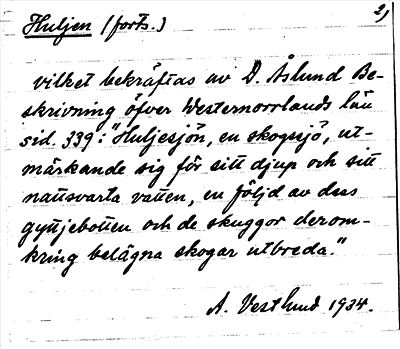 Huljen (forts.) 2)
vilket bekräftas av D. Åslund Be-
skrivning öfver Westernorrlands län
sid. 339: "Huljesjön, en skogssjö, ut-
märkande sig för sitt djup och sitt
nattsvarta vatten, en följd av dess
gyttjebotten och de skuggor derom-
kring belägna skogar utbreda."
A. Vestlund 1934.